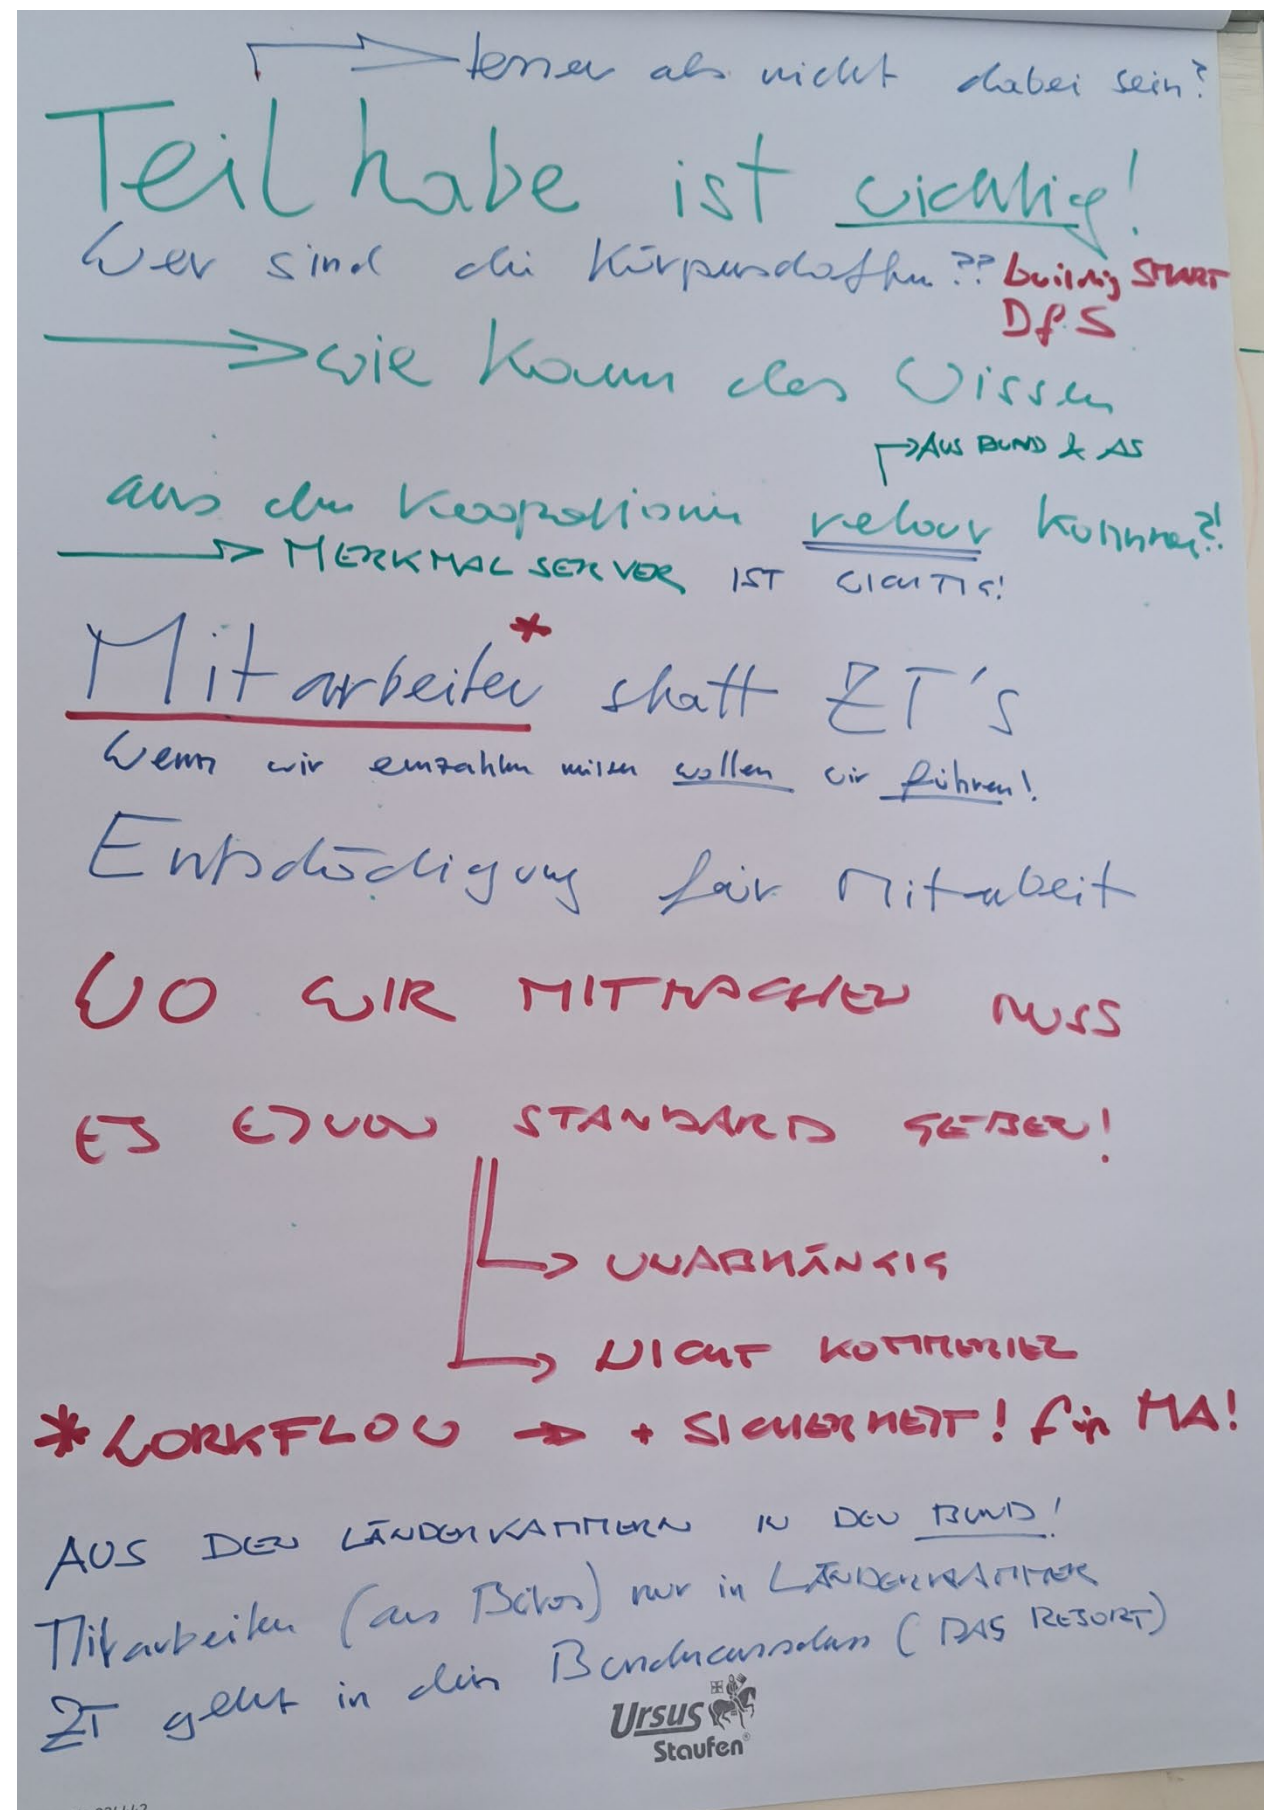 besser als nicht dabei sein?
Teilhabe ist wichtig!
Wer sind die Körperschaften?? building SMART
DfS
wie kann das Wissen
AUS BUND & AS
aus den Kooperationen retour kommen?!
MERKMALSERVER IST WICHTIG!
Mitarbeiter* statt ZT's
Wenn wir einzahlen müssen wollen wir führen!
Entschädigung für Mitarbeit
WO WIR MITMACHEN MUSS
ES EINEN STANDARD GEBEN!
UNABHÄNGIG
NICHT KOMMERIEL
* WORKFLOW + SICHERHEIT! für MA!
AUS DEN LÄNDERKAMMERN IN DEN BUND!
Mitarbeiten (aus Büros) nur in LÄNDERKAMMER
ZT geht in den Bundesausschuss (DAS RESORT)
Ursus
Staufen®